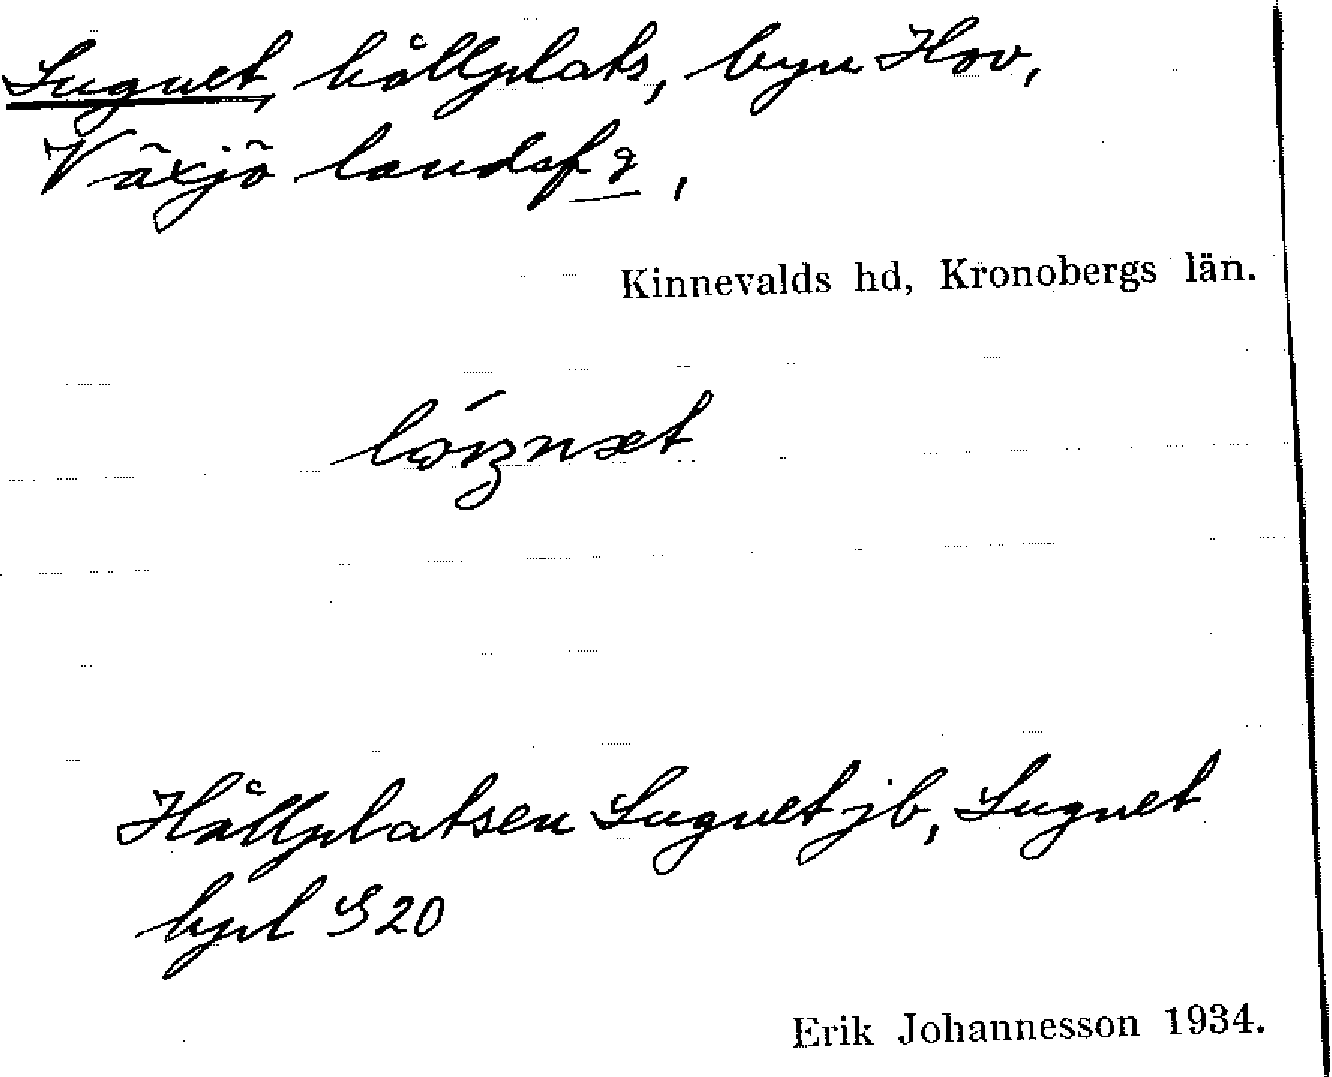 Lugnet, hållplats, byn Hov,
Växjö landsf g,
Kinnevalds hd, Kronobergs län.
Hållplatsen Lugnet jb, Lugnet
byrl S 20
Erik Johannesson 1934.